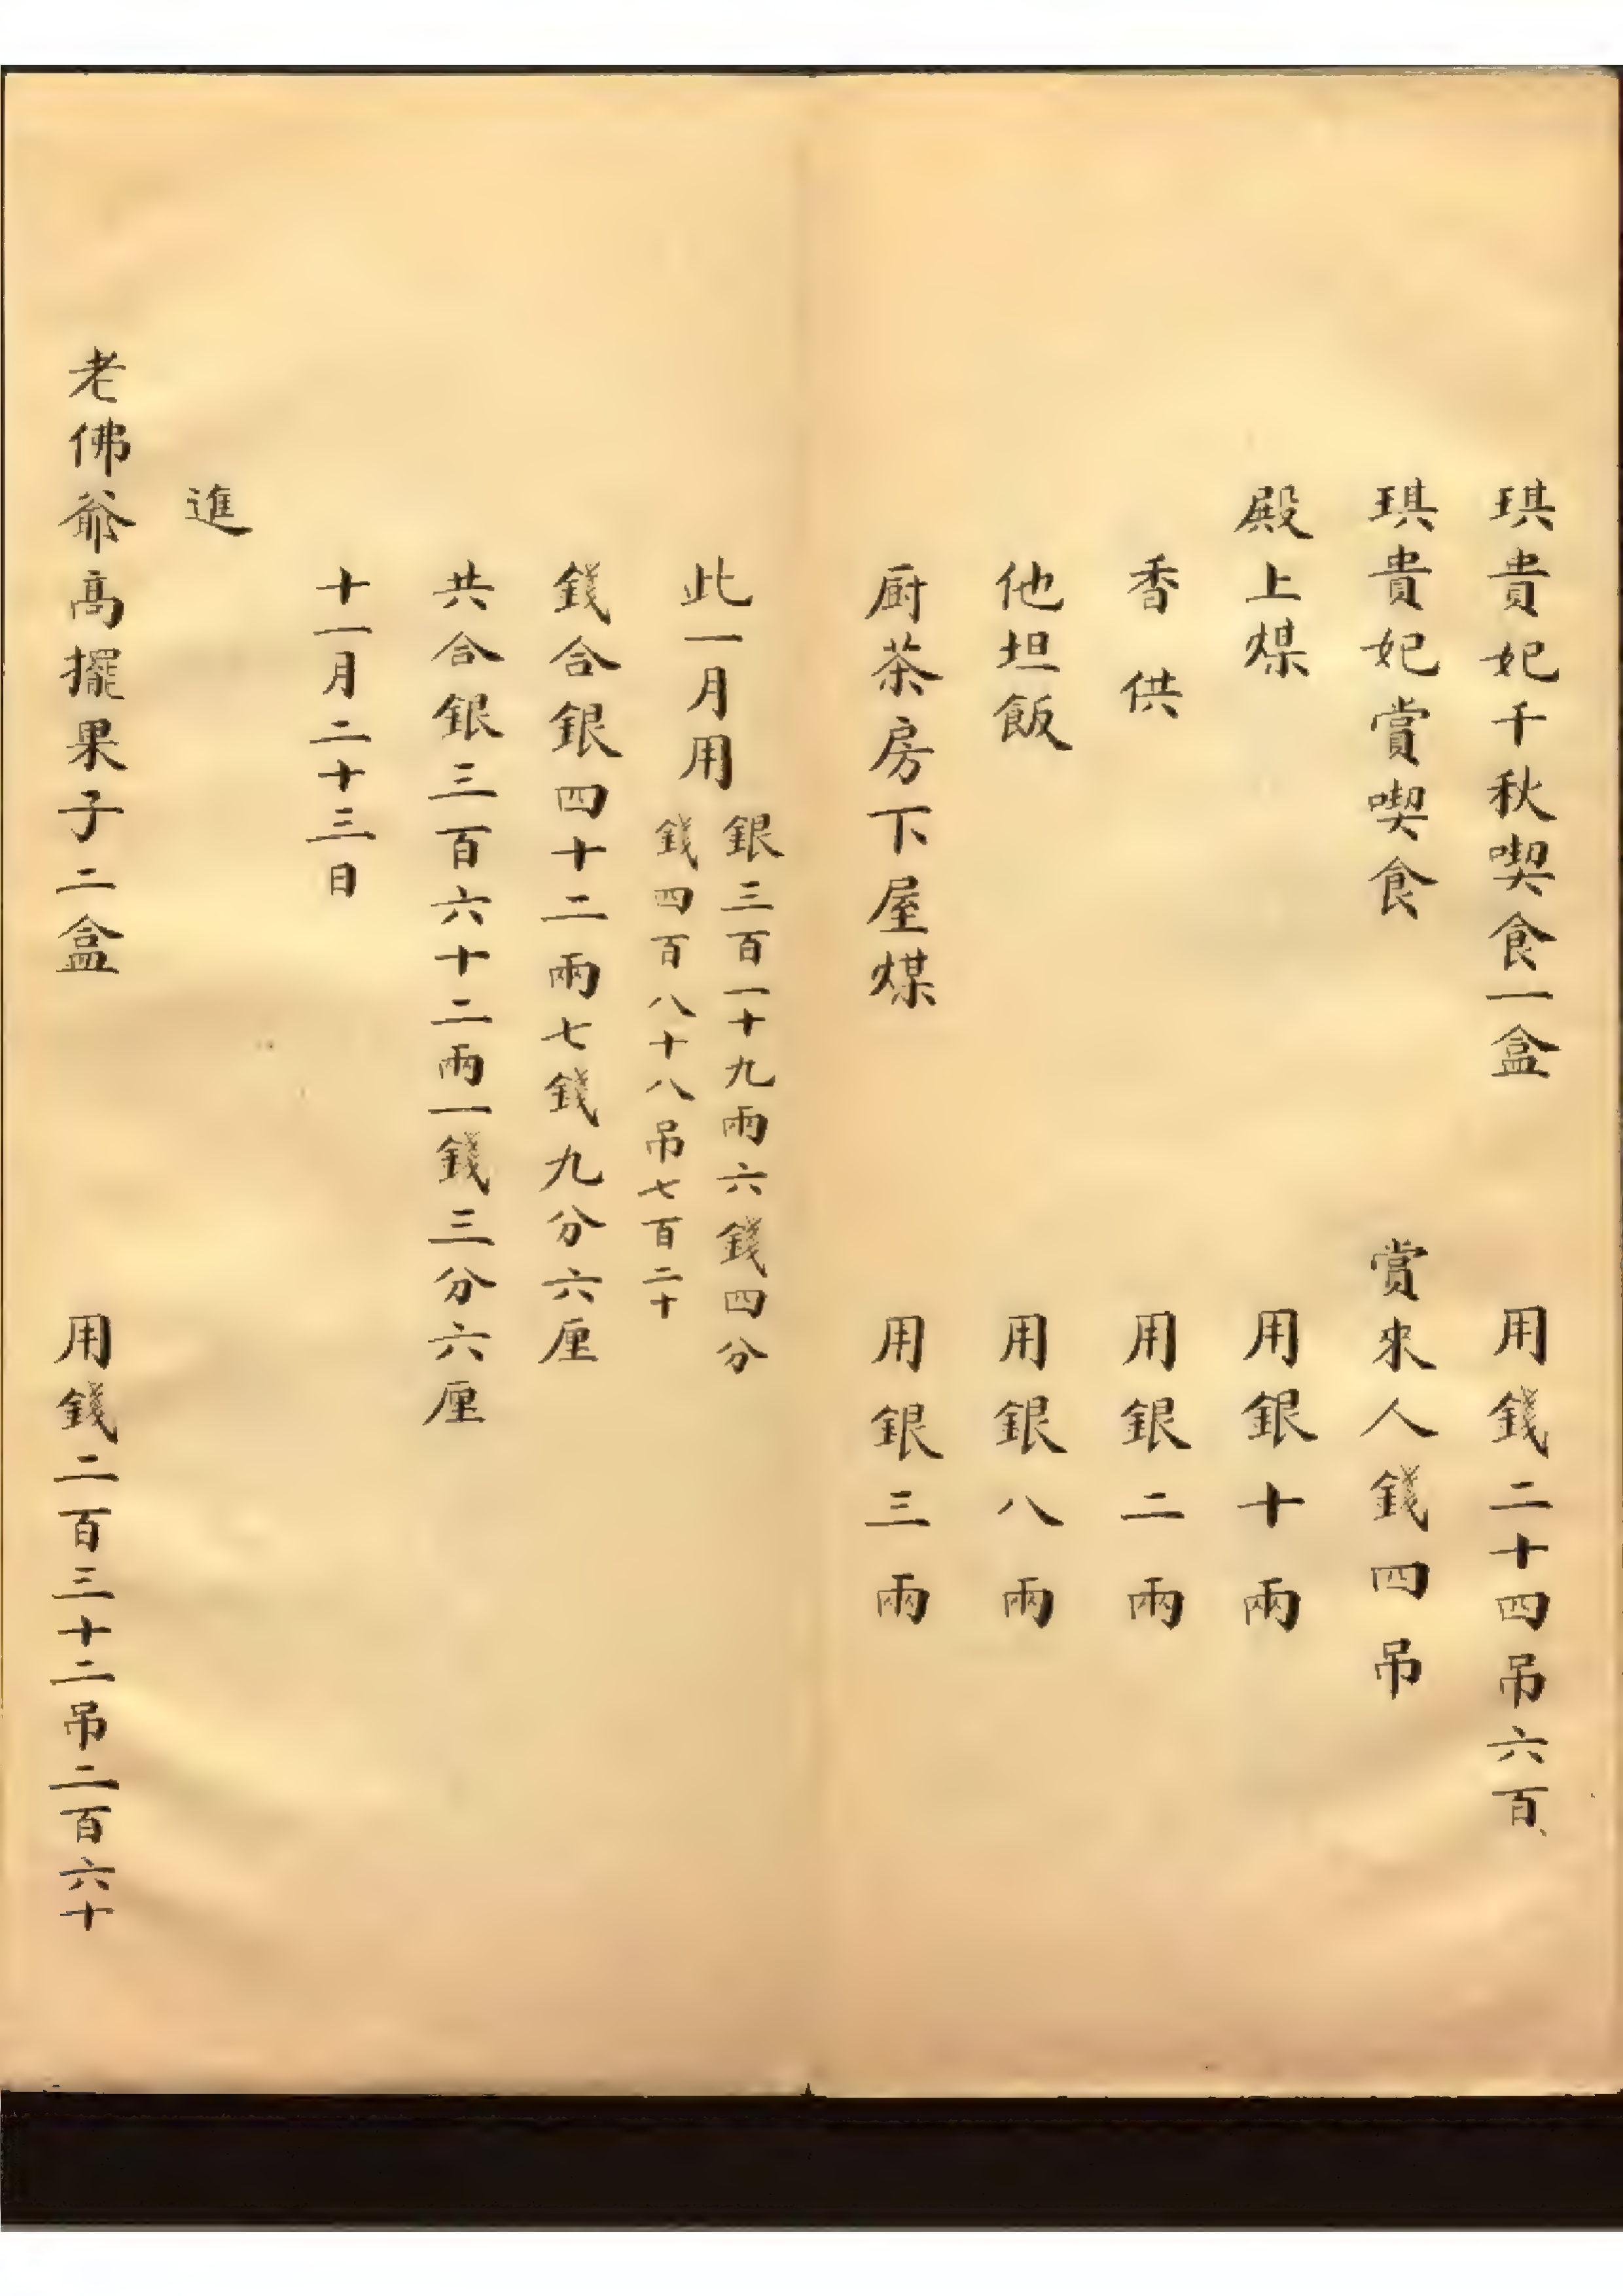 琪貴妃千秋喫食一盒　用錢二十四吊六百
琪貴妃賞喫食　賞來人錢四吊
殿上煤　用銀十兩
香供　用銀二兩
他坦飯　用銀八兩
厨茶房下屋煤　用銀三兩
此一月用
銀三百一十九兩六錢四分
錢四百八十八吊七百二十
錢合銀四十二兩七錢九分六厘
共合銀三百六十二兩一錢三分六厘
十一月二十三日
進
老佛爺高擺果子二盒　用錢二百三十二吊二百六十